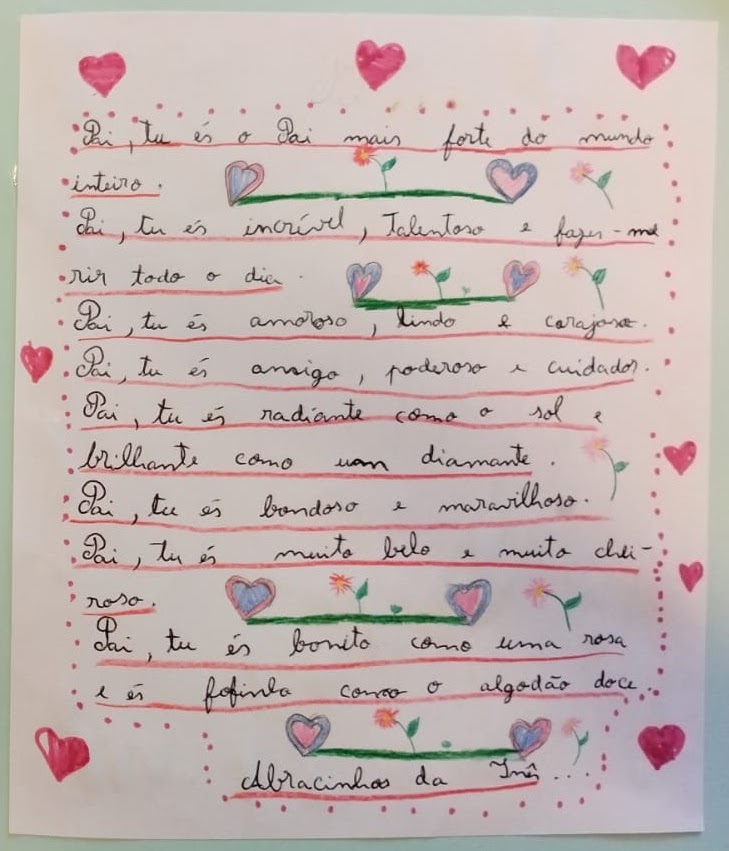 Pai, tu és o Pai mais forte do mundo
inteiro.
Pai, tu és incrível, Talentoso e fazes-me
rir todo o dia.
Pai, tu és amoroso, lindo e corajoso.
Pai, tu és amigo, poderoso e cuidador.
Pai, tu és radiante como o sol e
brilhante como um diamante.
Pai, tu és bondoso e maravilhoso.
Pai, tu és muito belo e muito chei-
roso.
Pai, tu és bonito como uma rosa
e és fofinho como o algodão doce.
Abracinhos da Inês...